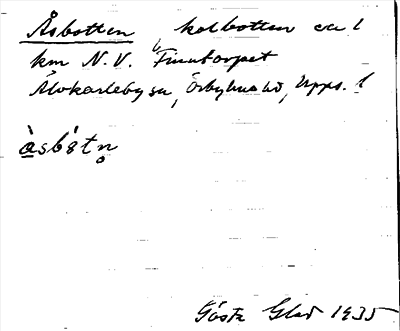 Åsbotten, kolbotten ca 1
km N.V. Finntorpet
Älvkarleby sn, Örbyhus hd, Upps. l
àsbòtn̥
Gösta Glad 1935